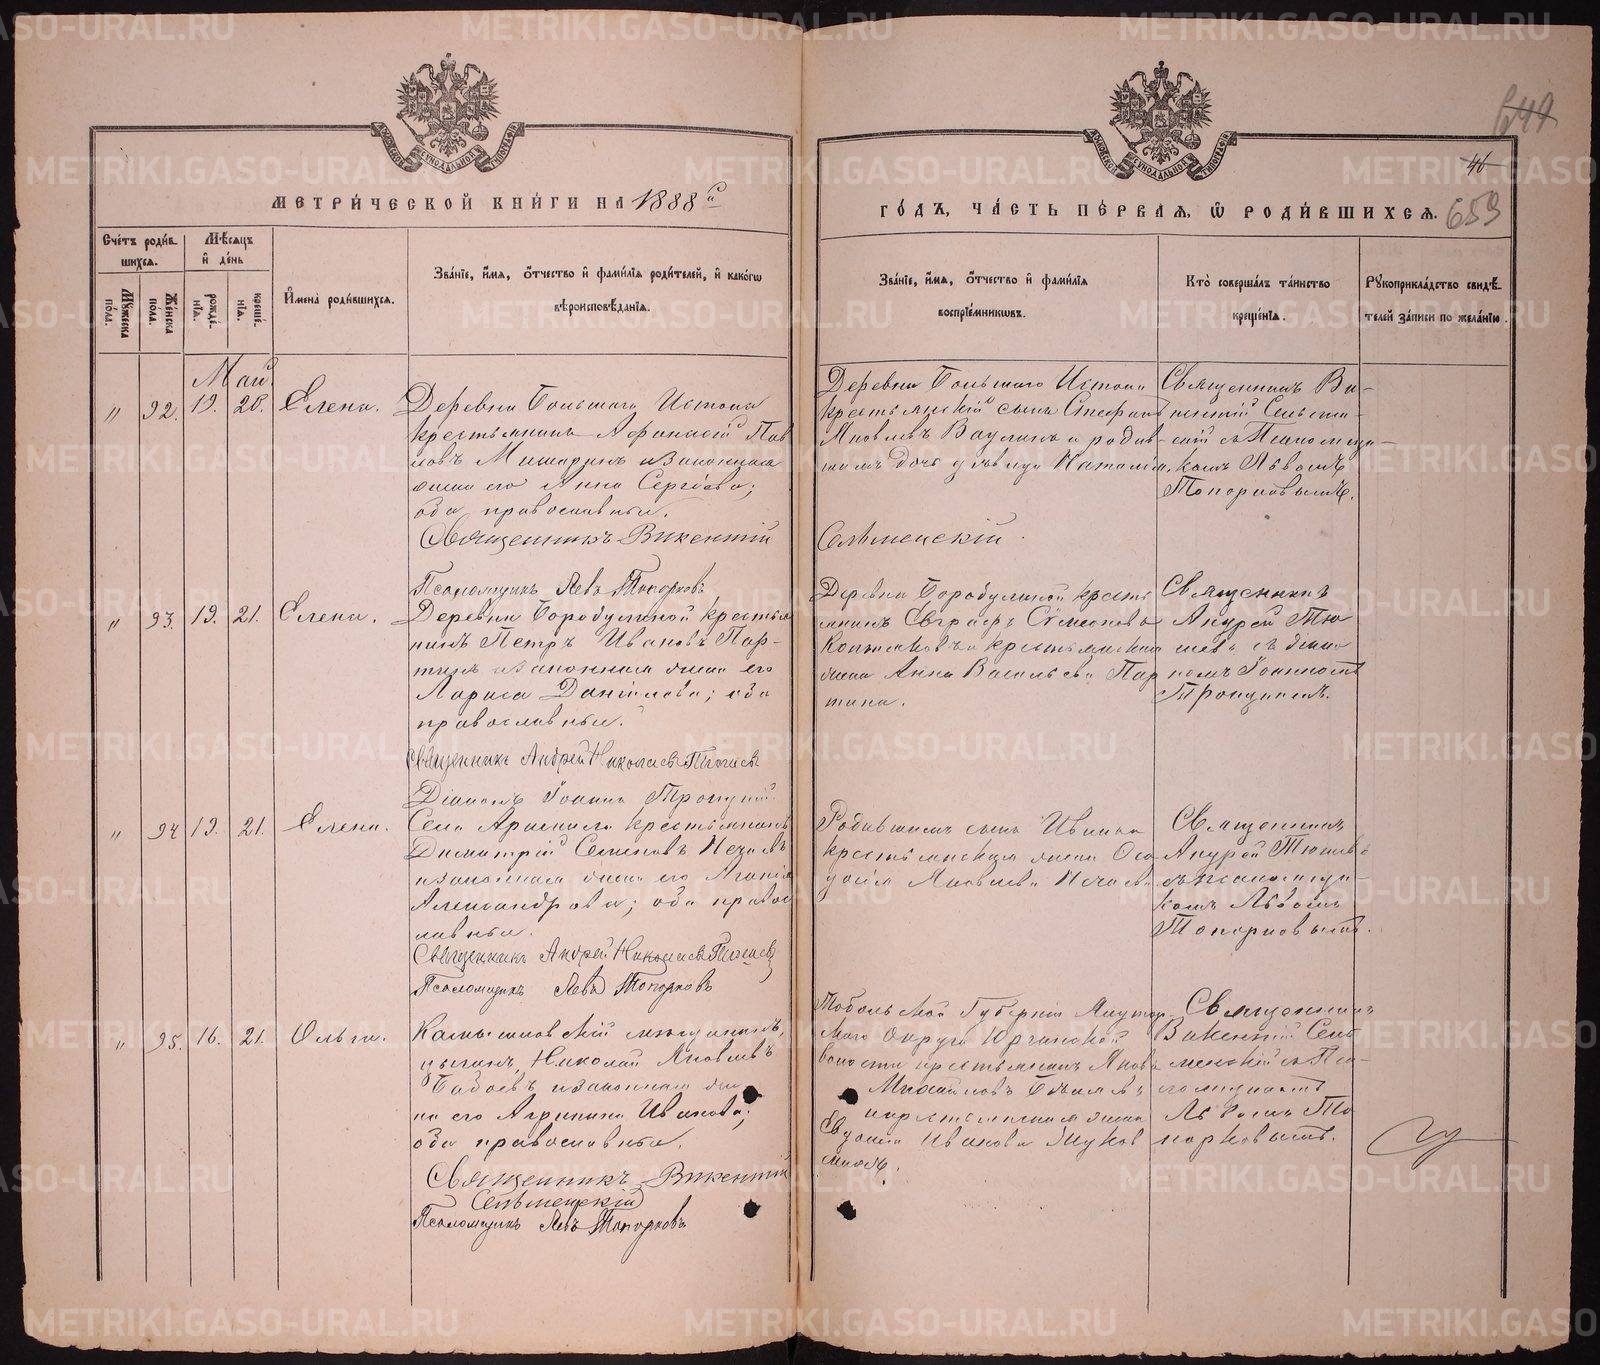 МЕТРИ́ЧЕСКОЙ КНИ́ГИ НА 1888й
ГО́ДЪ, ЧА́СТЬ ПЕ́РВАЯ, Ѡ РОДИ́ВШИХСЯ.
46
659
Сче́тъ роди́в-
шихся.
Му́жеска пола.
Же́нска пола.
Мѣ́сяцъ
и де́нь
рожде́нїя.
креще́нїя.
И҆мена̀ роди́вшихся.
Зва́нїе, и҆́мя, ѻ҆́тчество и҆ фами́лїѧ роди́телей, и҆ како́гѡ
вѣроисповѣ́данїя.
Зва́нїе, и҆́мя, ѻ҆́тчество и҆ фами́лїя
воспрїе́мникѡвъ.
Кто̀ соверша́лъ та́инство
креще́нїя.
Рꙋкоприкла́дство свидѣ́-
телей за́писи по жела́нїю.
Май
" 92. 19. 20. Елена.
Деревни Большаго Истока
крестьянинъ Афанасій Пав
ловъ Мишаринъ и законная
жена его Анна Сергіева;
оба православные.
Священникъ Викентій
Псаломщикъ Левъ Топорковъ
Деревни Большаго Истока
крестьянскій сынъ Стефанъ
Яковлевъ Ваулинъ и родив-
шихъ дочь девица Наталія.
Сельменскій
Священникъ Ви-
кентій Сельмен-
скій съ Псаломщи-
комъ Львомъ
Топорковымъ.
" 93. 19. 21. Елена.
Деревни Бородулиной крестья
нинъ Петръ Ивановъ Пар-
тинъ и законная жена его
Лариса Даніилова; оба
православные.
Священникъ Андрей Николаевъ
Діаконъ Іоаннъ Троицкій
Деревни Бородулиной кресть
янинъ Евграфъ Сѵмеоновъ
и крестьянская
жена Анна Васильева Пар
тина.
Священникъ
Андрей Тю
шевъ съ діако
номъ Іоанномъ
Троицкимъ.
" 94 19. 21. Елена.
Села Арамили крестьянинъ
Димитрій Семеновъ
и законная жена его Агапія
Александрова; оба правос
лавные.
Священникъ Андрей Николаевъ
Псаломщикъ Левъ Топорковъ
Родившихъ сынъ Иванъ
крестьянская жена
Яковлева
Священникъ
Андрей Тюшевъ
съ псаломщи-
комъ Львомъ
Топорковымъ.
" 95. 16. 21. Ольга.
Камышловскій мѣщанинъ,
цыганъ, Николай Яковлевъ
и законная же
на его Агрипина Иванова;
оба православные.
Священникъ Викентій
Сельменскій
Псаломщикъ Левъ Топорковъ
Тобольской Губерніи Ялутор
скаго Округа Юргинской
волости крестьянинъ Яковъ
Михайловъ
и крестьянская жена
Евдокія Иванова
Священникъ
Викентій Сель
менскій съ Пса-
ломщикомъ
Львомъ То
порковымъ.